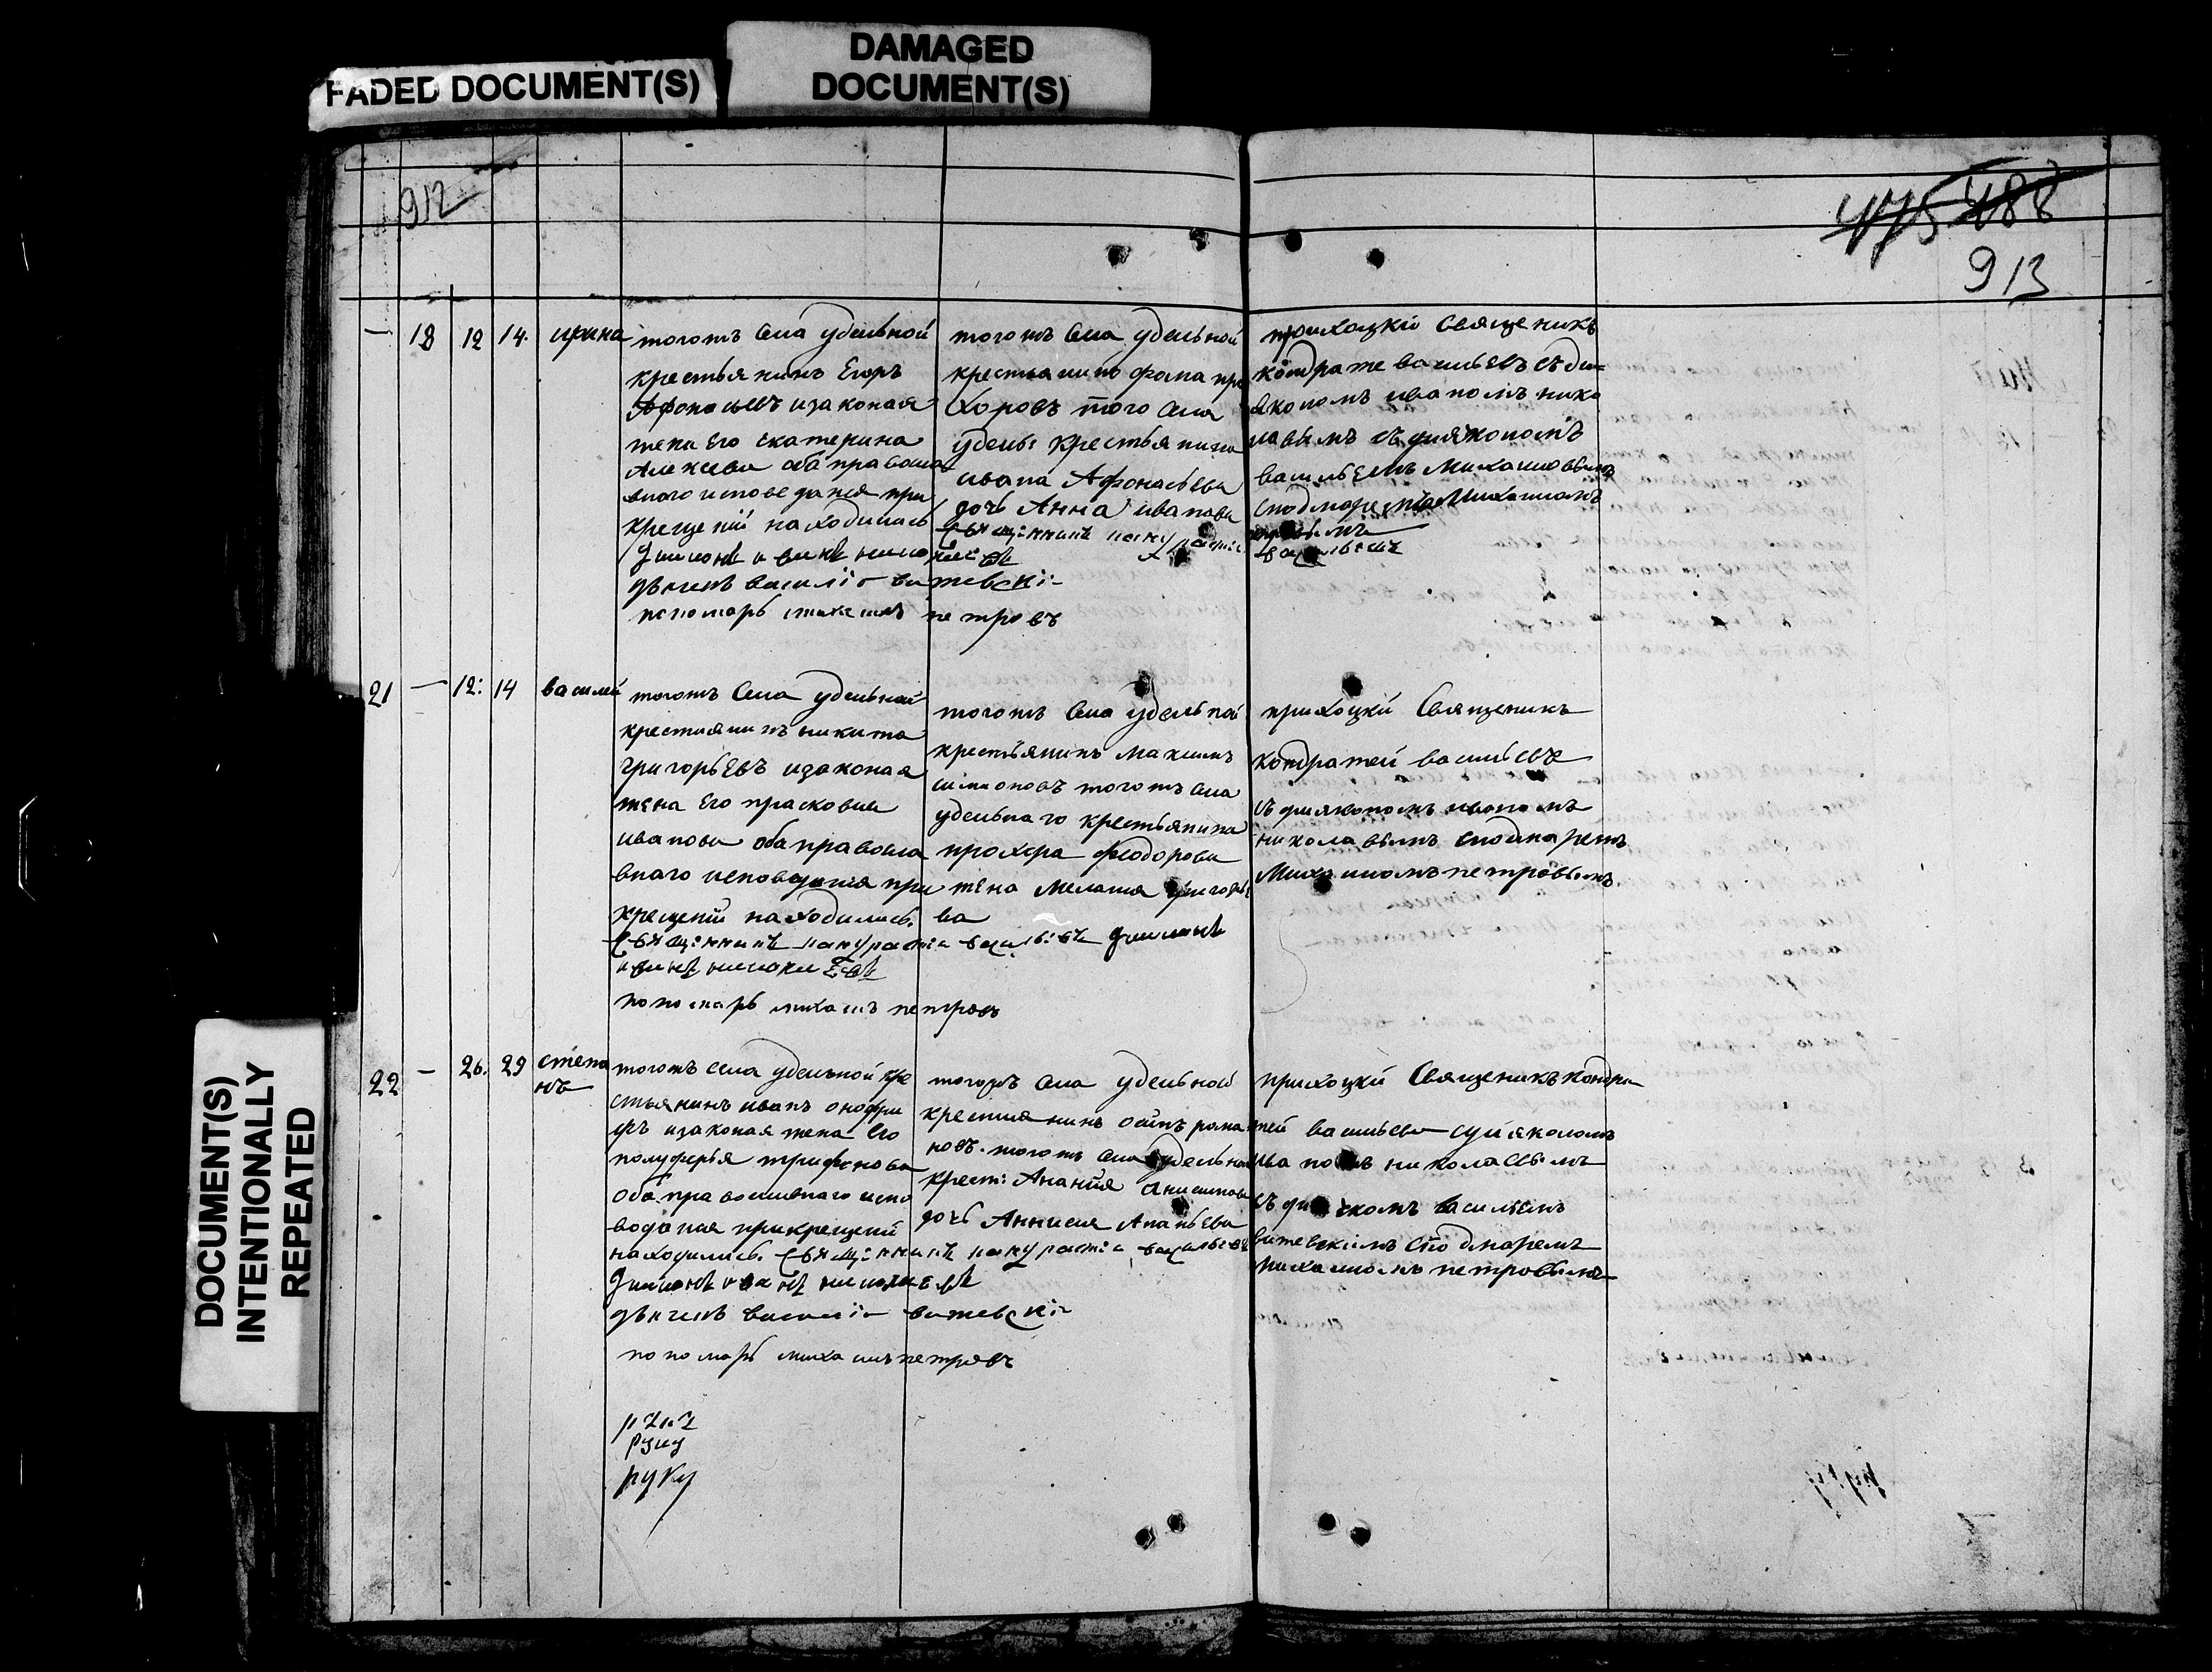 FADED DOCUMENT(S)
DAMAGED
DOCUMENT(S)
DOCUMENT(S)
INTENTIONALLY
REPEATED
912
475 488
913
— 18 12 14. ирина
тогожъ села удельной
крестьянинъ Егоръ
Афонасьевъ изаконая
жена Его екатерина
Алексева оба православ
наго исповеданея при
крещеніи находились
дьячекъ василіи витевскіи
пономарь михаилъ петровъ
тогожъ села удельной
крестьянинъ фома про
хоровъ того села
удельн: крестьянина
ивана Афонасьева
дочь Анна иванова
священникъ
приходцкій Священикъ
кондратей васильевъ съ ди
якономъ иваномъ нико
лавымъ съ диякономъ
васильемъ Михаиловымъ
спономаремъ Михаиломъ
21 — 12: 14 василей
тогожъ села удельной
крестиянинъ никита
григорьевъ изаконая
жена Его прасковия
иванова оба правосла
внаго исповедания при
крещеніи находились.
священникъ кондратеи васильевъ
пономарь михаилъ петровъ
тогожъ села удельной
крестьянинъ максимъ
симионовъ тогожъ села
удельнаго крестьянина
прохора феодорова
жена Мелания григорье
ва
приходцкій Священикъ
кондратей васильевъ
съ диякономъ иваномъ
николавымъ спономаремъ
Михаиломъ петровымъ
22 — 26. 29 степа
нъ
тогожъ села удельной кре
стьянинъ иванъ онофри
евъ изаконая жена Его
полуферья трифонова
оба православнаго испо
ведания прикрещеніи
находились. священникъ кондратеи васильевъ
дьячекъ василіи витевскіи
пономарь михаилъ петровъ
тогожъ села удельной
крестиянинъ осипъ рома
новъ. тогожъ села удельна
крест: Анания Анисимова
дочь Аннисия Ананьева
приходцкій Священикъ кондра
тей васильевъ сдияконом
иваномъ николаевымъ
съ дьячкомъ васильемъ
витевскимъ спономаремъ
Михаиломъ петровымъ
руку
руку